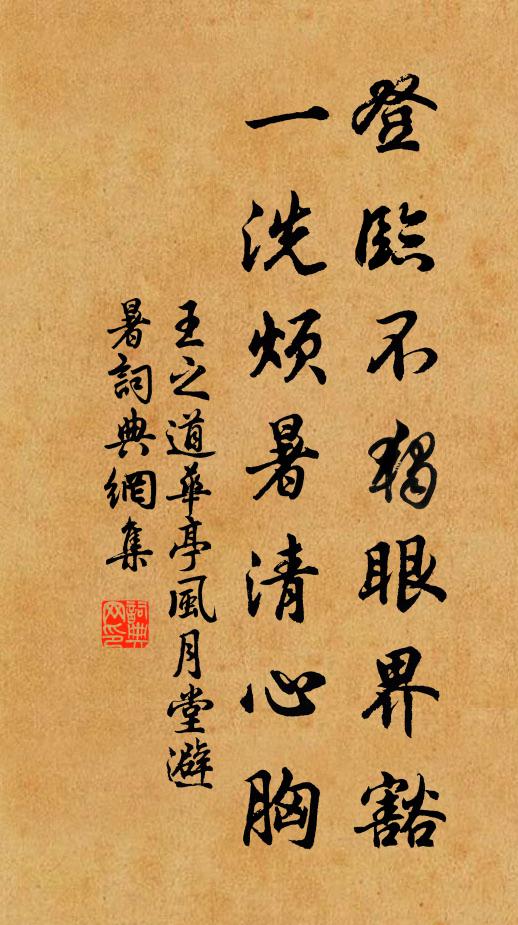 登臨不獨眼界豁
一洗煩暑清心胸
王之道華亭風月堂避
暑詞典網集
詞典
網印